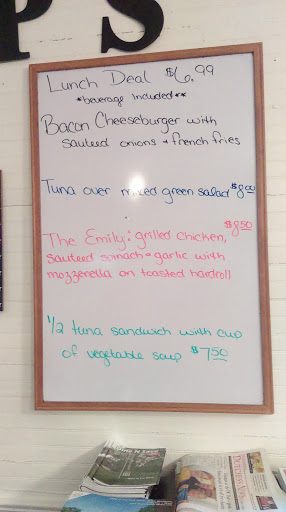 PS
Lunch Deal $6.99
*beverage Included**
Bacon Cheeseburger with
sauteed onions + french fries
Tuna over mixed green salad $8.00
$8.50
The Emily: grilled chicken,
sauteed spinach + garlic with
mozzerella on toasted hardroll
1/2 tuna sandwich with cup
of vegetable soup $7.50